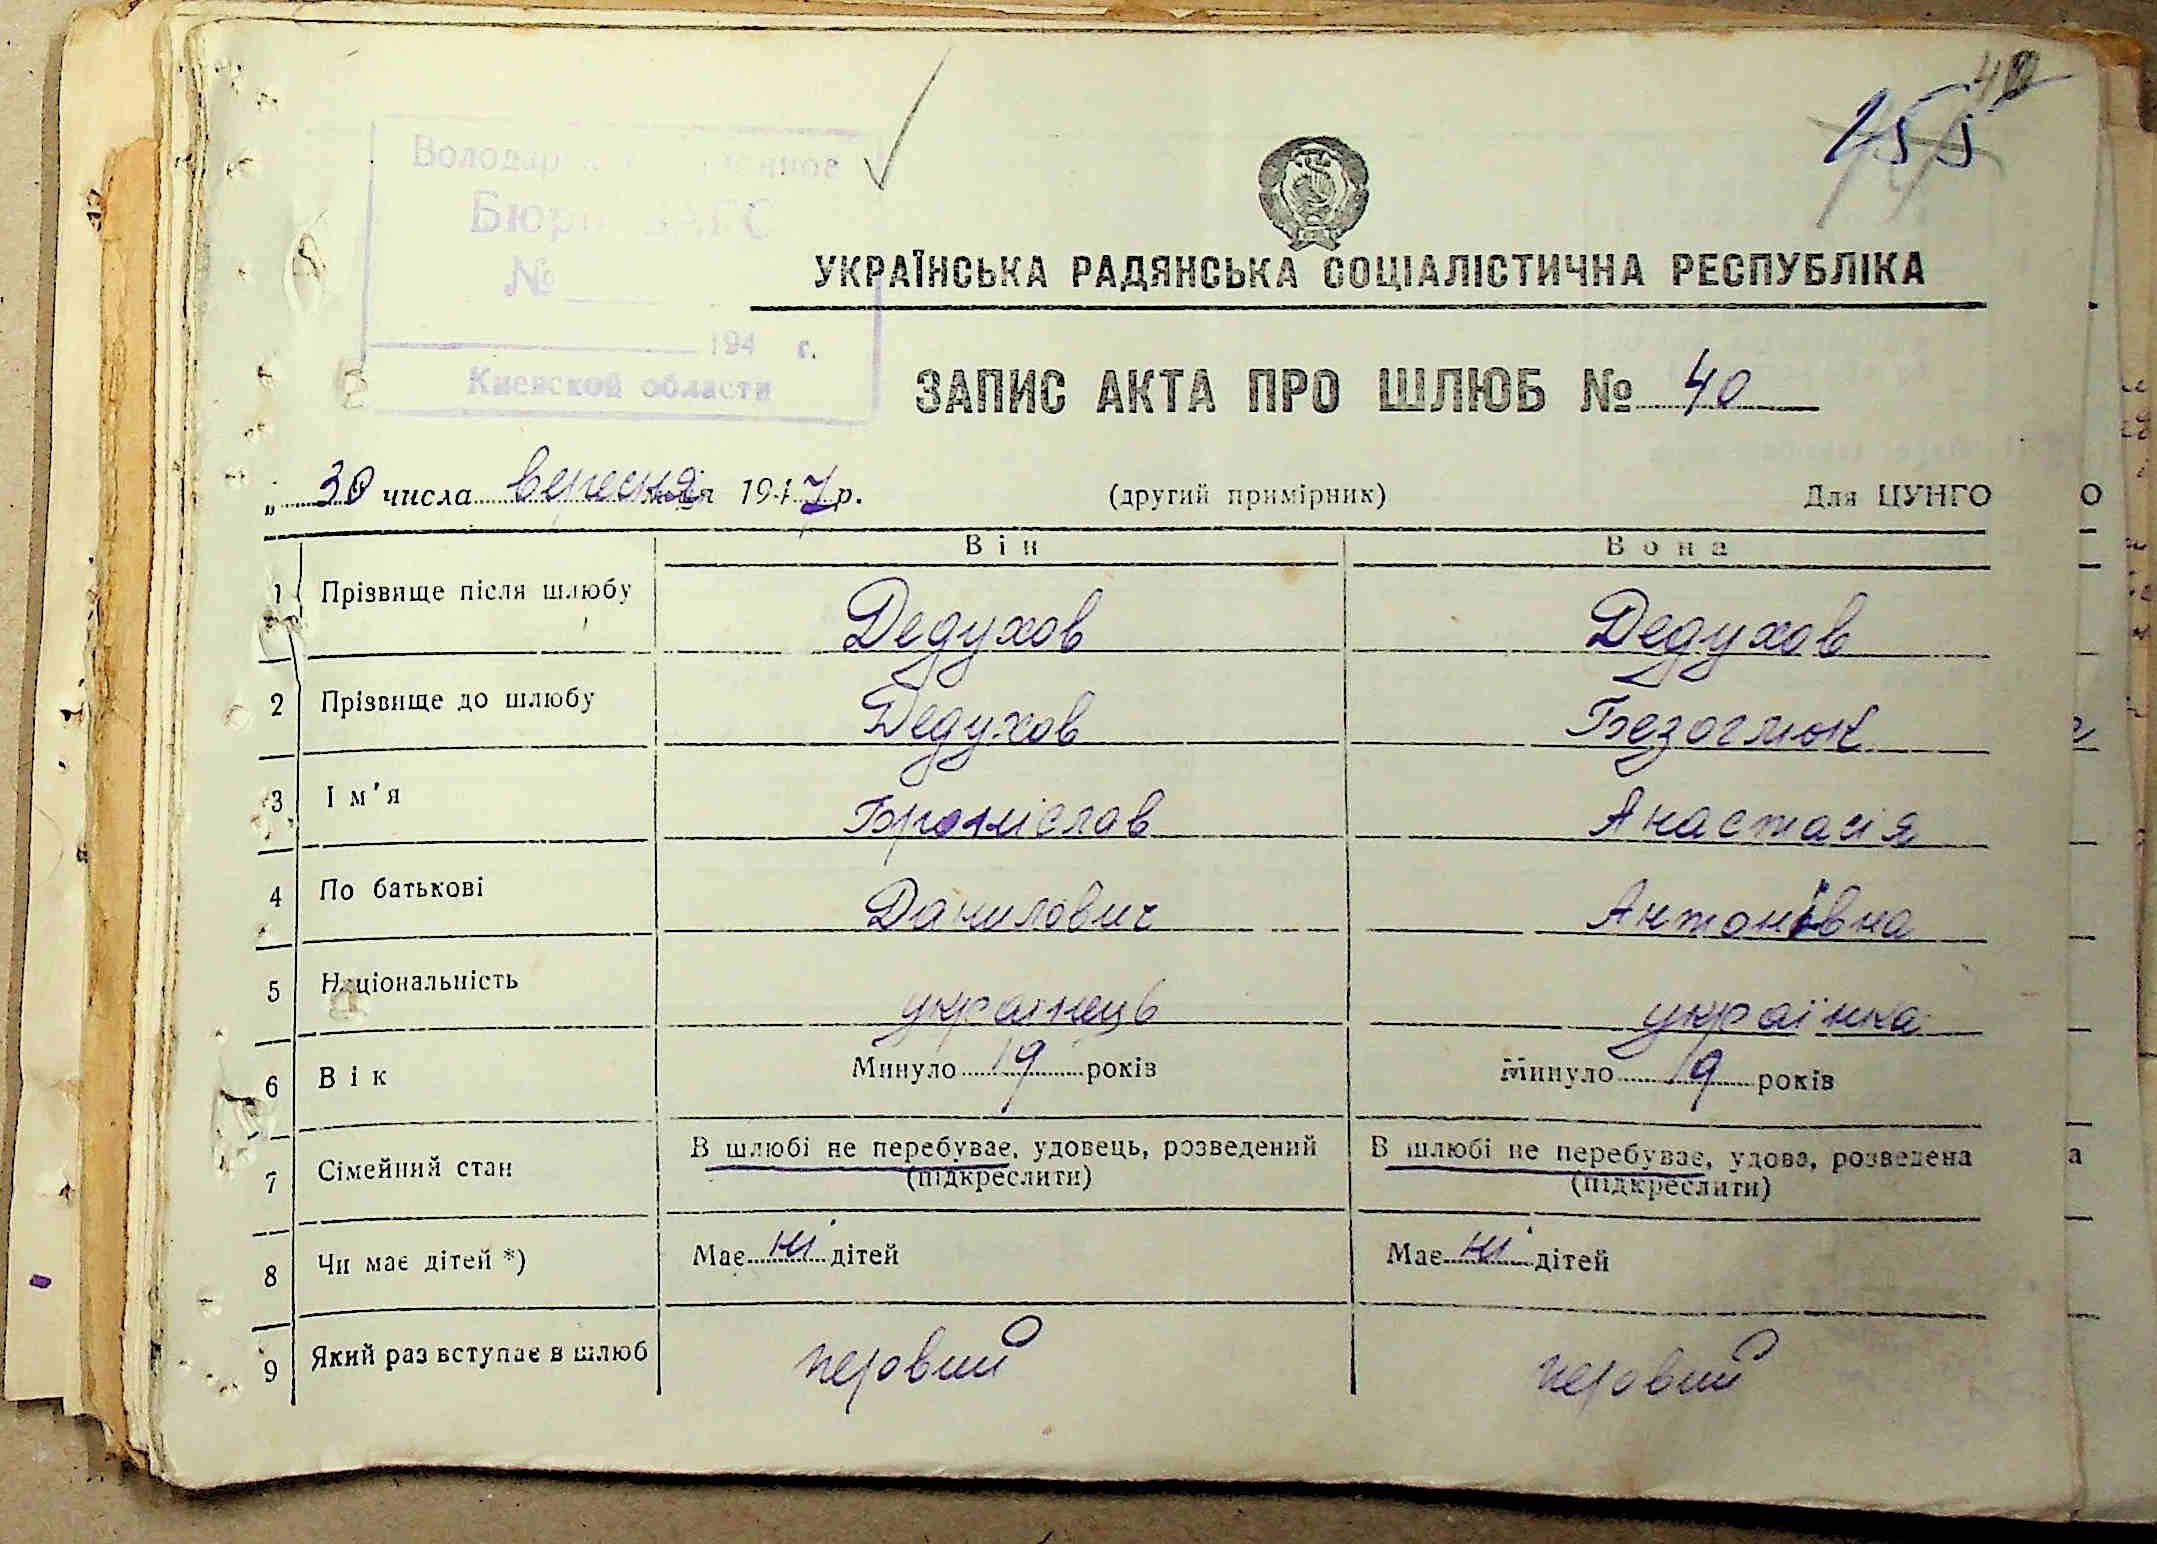 40
155
Бюро ЗАГС
№
194 г.
Киевской области
УКРАЇНСЬКА РАДЯНСЬКА СОЦІАЛІСТИЧНА РЕСПУБЛІКА
ЗАПИС АКТА ПРО ШЛЮБ № 40
„ 30 числа вересня 1947 р. (другий примірник) Для ЦУНГО
Він Вона
1 Прізвище після шлюбу Дедухов Дедухов
2 Прізвище до шлюбу Дедухов Безоглюк
3 Ім'я Броніслав Анастасія
4 По батькові Данилович Антонівна
5 Національність українець українка
6 Вік Минуло 19 років Минуло 19 років
7 Сімейний стан В шлюбі не перебуває, удовець, розведений В шлюбі не перебуває, удова, розведена
(підкреслити) (підкреслити)
8 Чи має дітей *) Має ні дітей Має ні дітей
9 Який раз вступає в шлюб первий первий